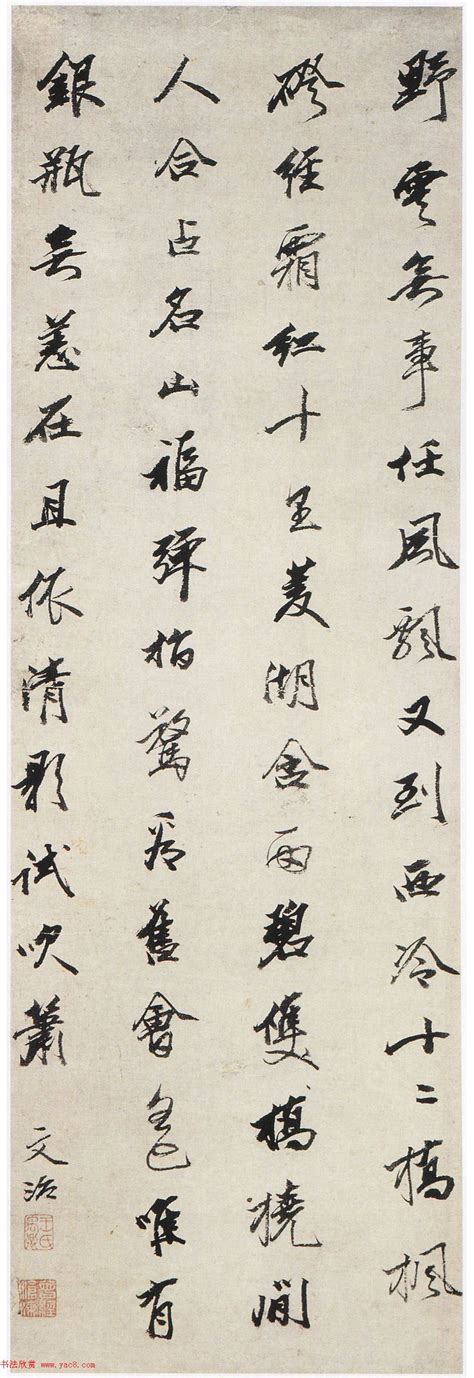 野雲無事任風飄又到西泠十二橋楓
磴經霜紅十里菱湖含雨碧雙橋橈閒
人合占名山福彈指驚看舊會唯有
銀瓶無恙在且依清影試吹簫
文治
王氏禹卿
书法欣赏 www.yac8.com